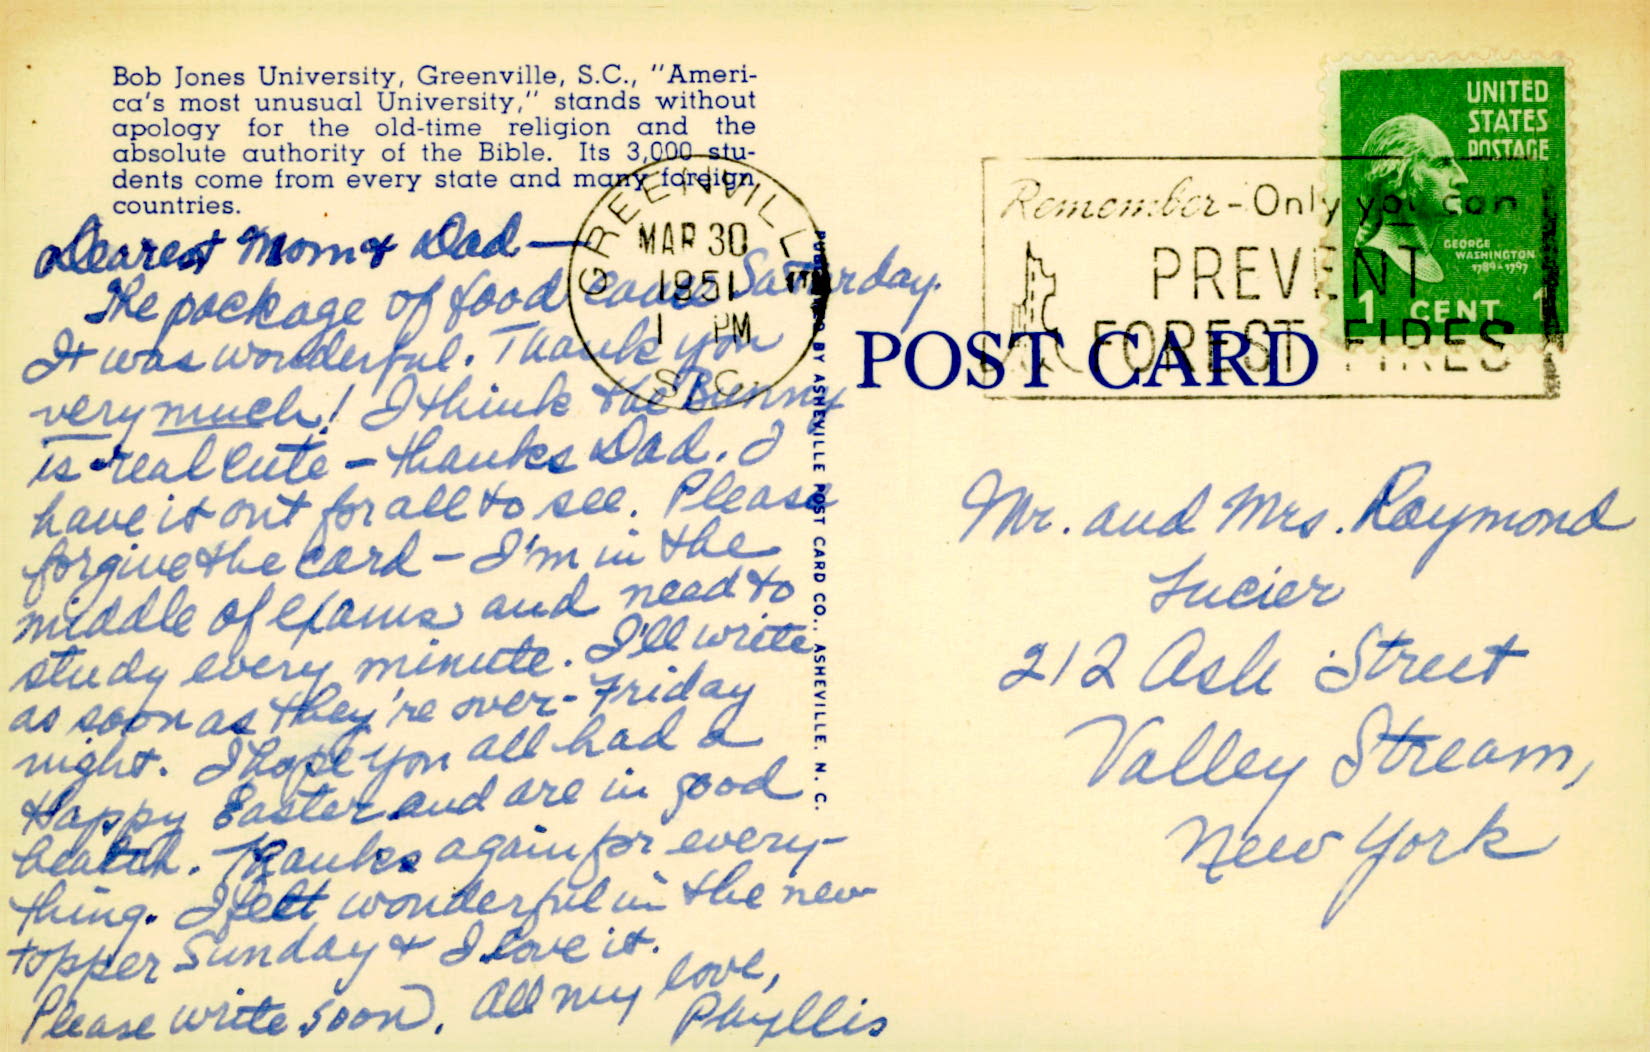 Bob Jones University, Greenville, S.C., "Ameri-
ca's most unusual University," stands without
apology for the old-time religion and the
absolute authority of the Bible. Its 3,000 stu-
dents come from every state and many foreign
countries.
Dearest Mom & Dad —
The package of food came Saturday.
It was wonderful. Thank you
very much! I think the Bunny
is real cute — thanks Dad. I
have it out for all to see. Please
forgive the card — I'm in the
middle of exams and need to
study every minute. I'll write
as soon as they're over - Friday
night. I hope you all had a
Happy Easter and are in good
health. Thanks again for every-
thing. I felt wonderful in the new
topper Sunday & I love it.
Please write soon. All my love,
Phyllis
GREENVILLE
MAR 30
1951
1 PM
S.C.
PUBLISHED BY ASHEVILLE POST CARD CO., ASHEVILLE, N. C.
POST CARD
Remember - Only you can
PREVENT
FOREST FIRES
UNITED
STATES
POSTAGE
GEORGE
WASHINGTON
1789-1797
1 CENT 1
Mr. and Mrs. Raymond
Lucier
212 Ash Street
Valley Stream,
New York